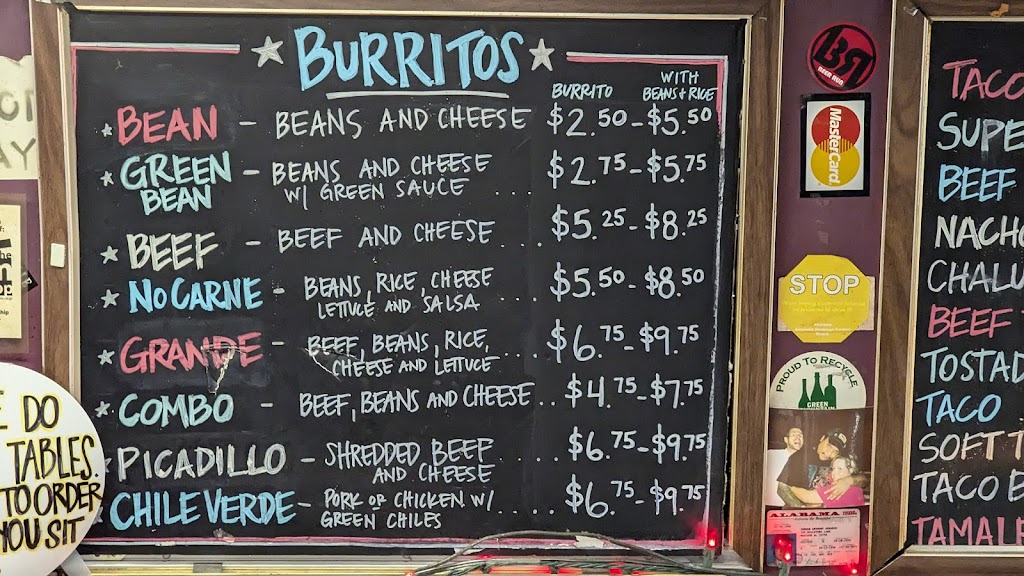 BURRITOS
BURRITO
WITH
BEANS + RICE
BEAN - BEANS AND CHEESE $2.50 - $5.50
GREEN BEAN - BEANS AND CHEESE
W/ GREEN SAUCE .... $2.75 - $5.75
BEEF - BEEF AND CHEESE .... $5.25 - $8.25
NO CARNE - BEANS, RICE, CHEESE
LETUCE AND SALSA ... $5.50 - $8.50
GRANDE - BEEF, BEANS, RICE,
CHEESE AND LETTUCE .... $6.75 - $9.75
COMBO - BEEF, BEANS AND CHEESE .. $4.75 - $7.75
PICADILLO - SHREDDED BEEF
AND CHEESE .... $6.75 - $9.75
CHILE VERDE - PORK OR CHICKEN W/
GREEN CHILES ... $6.75 - $9.75
DO
TABLES.
TO ORDER
YOU SIT
BEER RUN
MasterCard
STOP
PROUD TO RECYCLE
GREEN
ALABAMA
TACO
SUPE
BEEF
NACHO
CHALU
BEEF
TOSTAD
TACO
SOFT T
TACO B
TAMALE